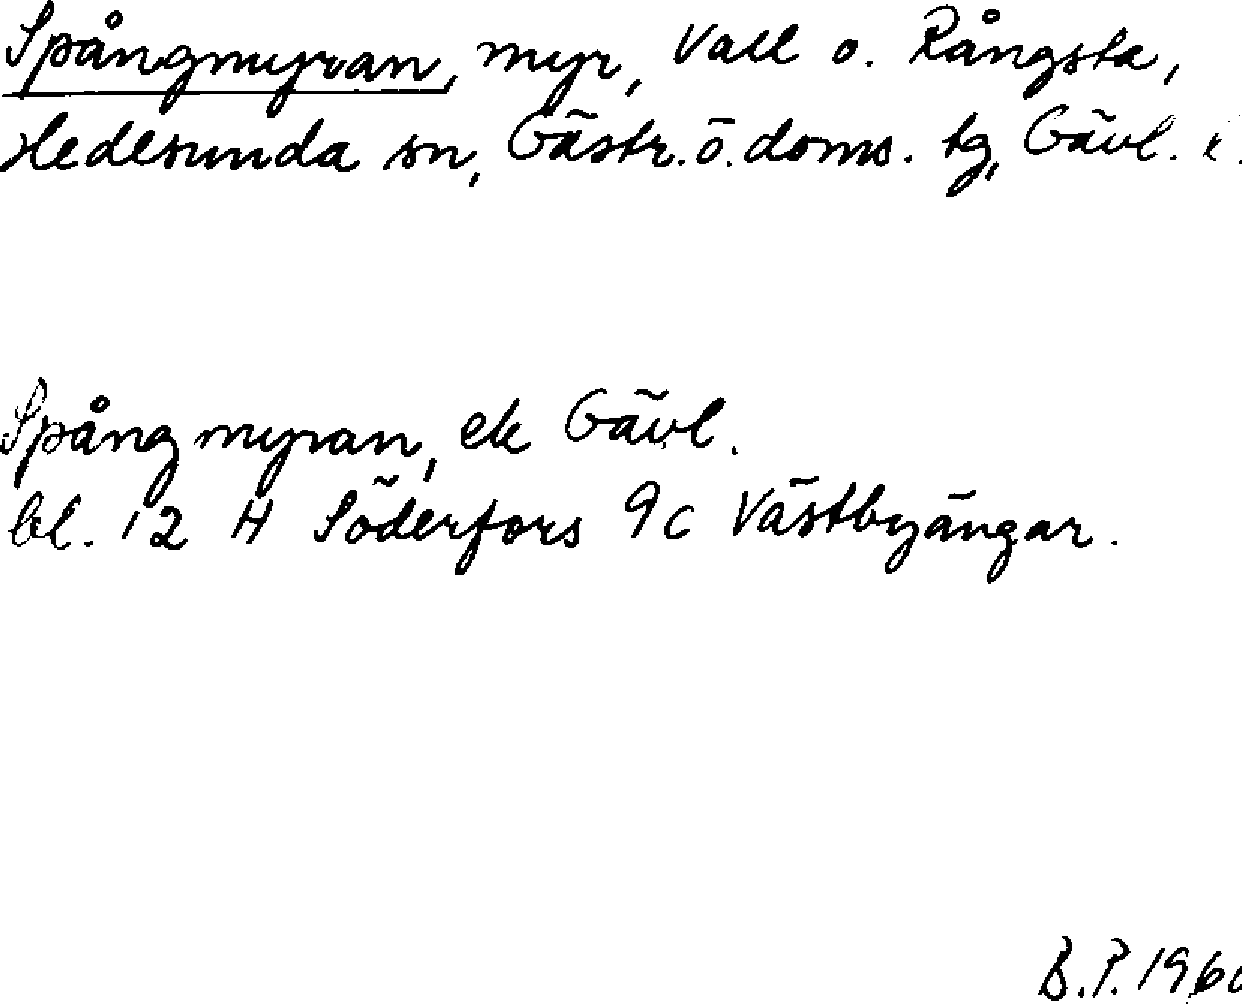 Spångmyran, myr, Vall o. Rångsta,
Hedesunda sn, Gästr. ö. doms. tg, Gävl. l.
Spångmyran, ek Gävl.
bl. 12 H Söderfors 9c Västbyängar.
B.P. 1960